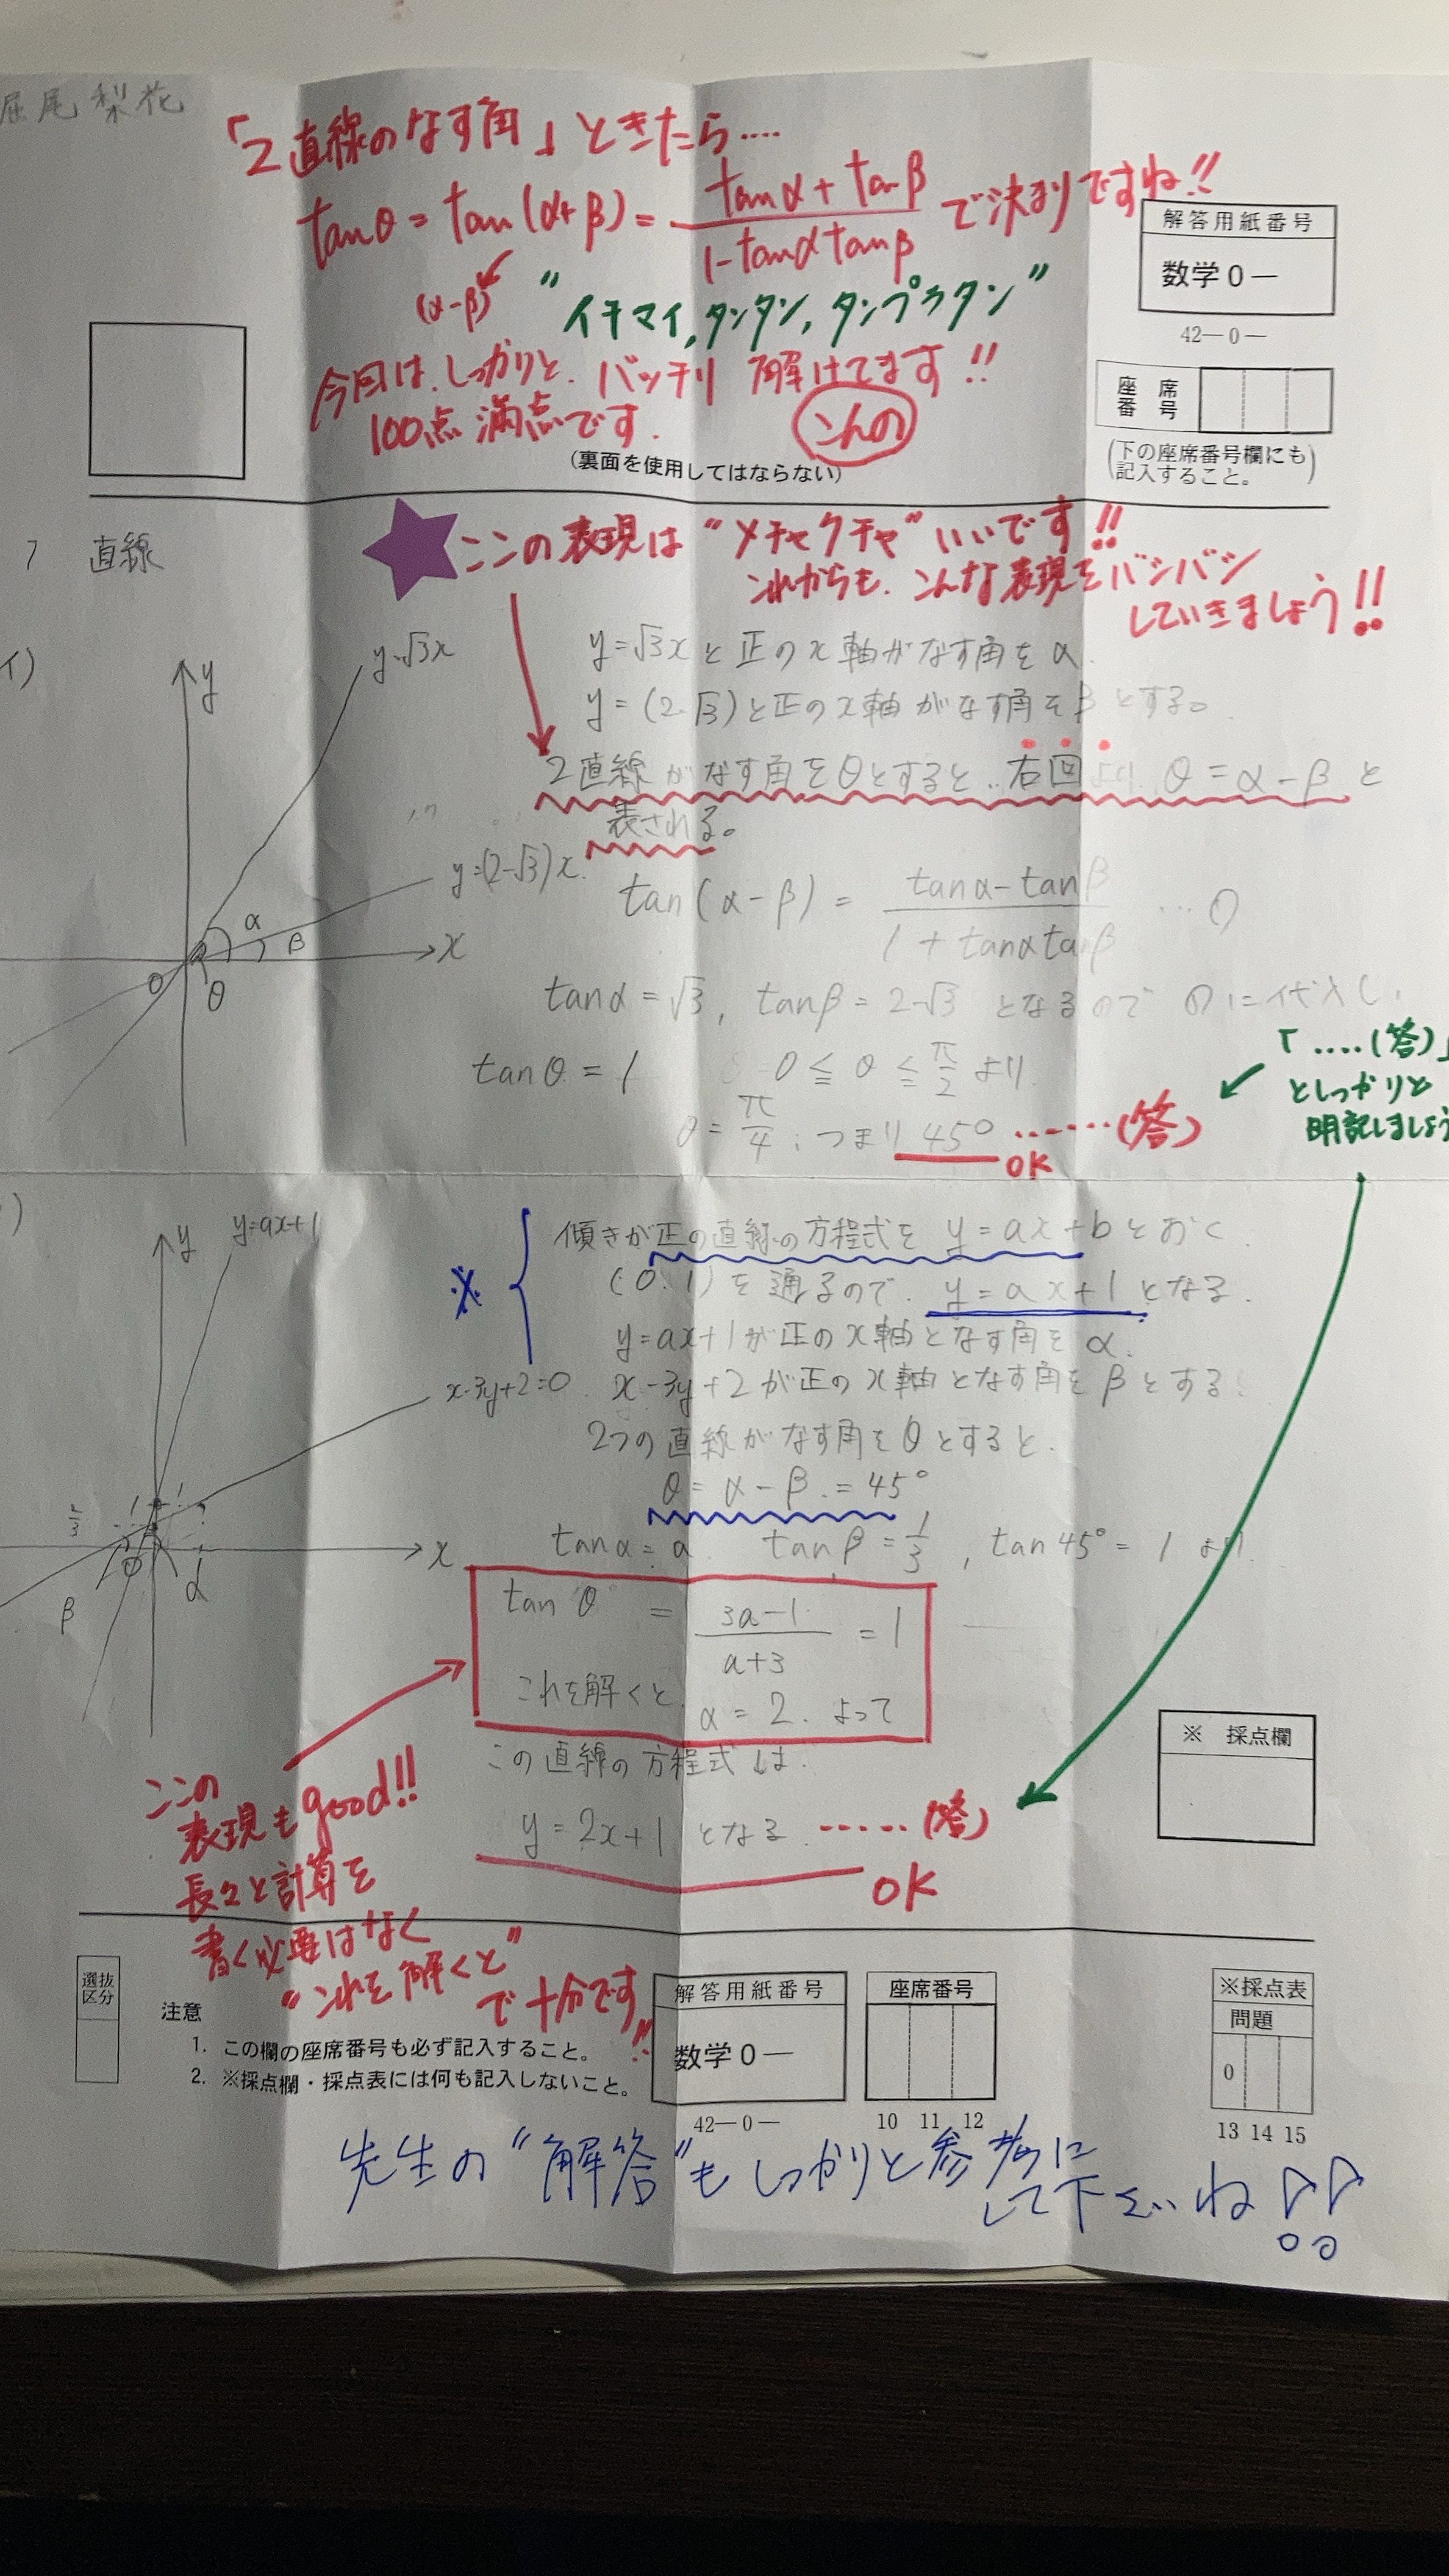 屈尾 梨花
「2直線のなす角」ときたら....
tanθ = tan(α+β) = (tanα + tanβ)/(1-tanα tanβ) で決まりですね!!
(α-β)
"イチマイ,タンタン, タンプラタン"
今回は、しっかりと、バッチリ 解けてます!!
100点 満点です.
こんの
(裏面を使用してはならない)
解答用紙番号
数学0―
42―0―
座席番号
(下の座席番号欄にも記入すること。)
7 直線
ここの表現は "メチャクチャ" いいです!!
これからも、こんな表現をバシバシ
していきましょう!!
イ)
y
y=√3x
y=(2-√3)x
α
β
x
O
θ
y=√3xと正のx軸がなす角をα.
y=(2-√3)と正のx軸がなす角をβとする。
2直線がなす角をθとすると、右図より、θ=α-βと
表される。
tan(α-β) = (tanα-tanβ)/(1+tanαtanβ) …①
tanα=√3, tanβ=2-√3 となるので ①に代入し、
tanθ=1 0≦θ≦π/2 より
θ=π/4, つまり 45° ……(答)
OK
「....(答)」
としっかりと
明記しましょう
)
y
y=ax+1
x-3y+2=0
2/3
1
1
x
β
α
※
傾きが正の直線の方程式を y=ax+b とおく.
(0.1)を通るので y=ax+1 となる.
y=ax+1が正のx軸となす角をα.
x-3y+2が正のx軸となす角をβとする.
2つの直線がなす角をθとすると、
θ=α-β.=45°
tanα=a tanβ=1/3, tan45°=1 より
tanθ = (3a-1)/(a+3) = 1
これを解くと、a=2. よって
この直線の方程式は.
y=2x+1 となる ……(答)
OK
ここの
表現も good!!
長々と計算を
書く必要はなく
"これを解くと"
で十分です!!
※ 採点欄
選抜区分
注意
1. この欄の座席番号も必ず記入すること。
2. ※採点欄・採点表には何も記入しないこと。
解答用紙番号
数学0―
42―0―
座席番号
10 11 12
※採点表
問題
0
13 14 15
先生の"解答"もしっかりと参考に
して下さいね!!